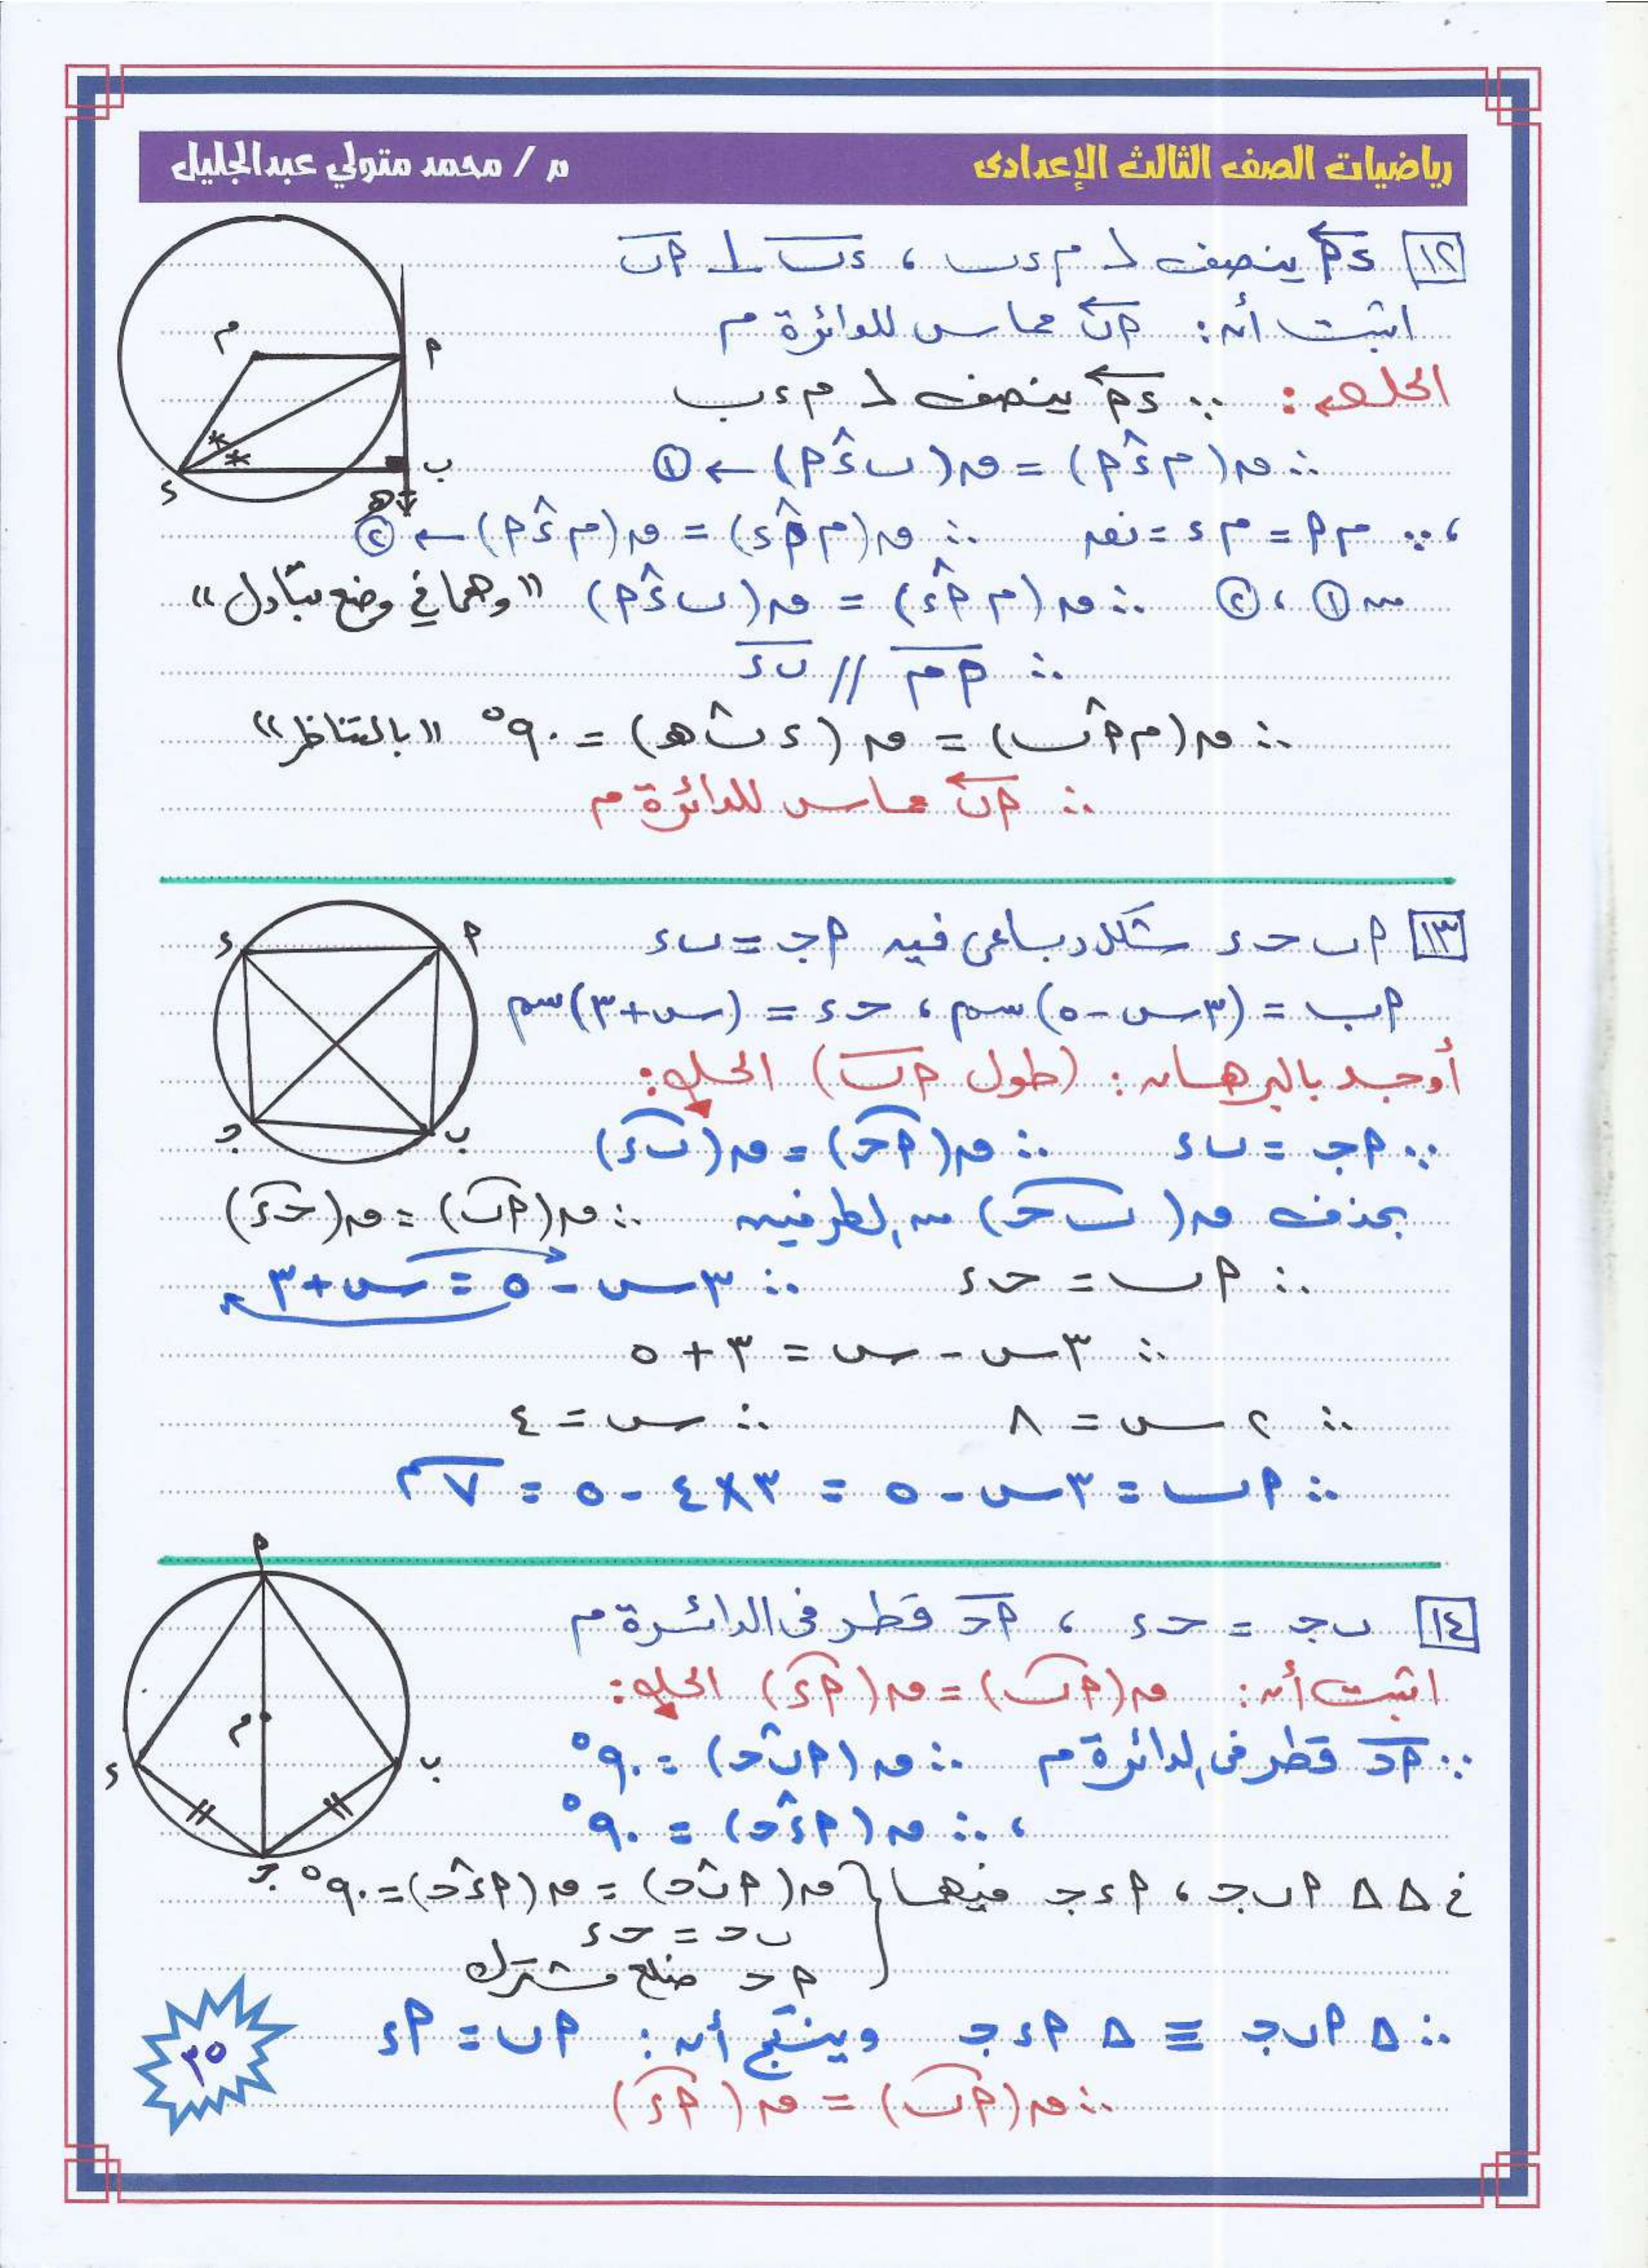 رياضيات الصف الثالث الإعدادى
م / محمد متولي عبدالجليل
١٢ ءأ ينصف ∠ مءب ، ءب ⊥ أب
اثبت أن: أب مماس للدائرة م
الحل: ∵ ءأ ينصف ∠ مءب
∴ ق(مءأ) = ق(بءأ) ← ①
، ∵ مأ = مء = نق ∴ ق(مأء) = ق(مءأ) ← ②
من ① ، ② ∴ ق(مأء) = ق(بءأ) "وهما في وضع تبادل"
∴ أم // بء
∴ ق(مأب) = ق(ءبه) = ٩٠° "بالتناظر"
∴ أب مماس للدائرة م
م
أ
ب
ء
ه
١٣ أب حء شكل رباعى فيه أج = بء
أب = (٣س - ٥) سم ، حء = (س + ٣) سم
أوجد بالبرهان: (طول أب) الحل:
∵ أج = بء ∴ ق(أح) = ق(بء)
بحذف ق(بح) من الطرفين ∴ ق(أب) = ق(حء)
∴ أب = حء ∴ ٣س - ٥ = س + ٣
∴ ٣س - س = ٣ + ٥
∴ ٢س = ٨ ∴ س = ٤
∴ أب = ٣س - ٥ = ٣×٤ - ٥ = ٧سم
ء
أ
ج
ب
١٤ بج = حء ، أح قطر فى الدائرة م
اثبت أن: ق(أب) = ق(أء) الحل:
∵ أح قطر فى الدائرة م ∴ ق(أبح) = ٩٠°
، ∴ ق(أءح) = ٩٠°
في ΔΔ أبج ، أءج فيهما { ق(أبح) = ق(أءح) = ٩٠°
بح = حء
أح ضلع مشترك
∴ Δ أبج ≡ Δ أءج وينتج أن: أب = أء
∴ ق(أب) = ق(أء)
أ
م
ب
ء
ج
٣٥